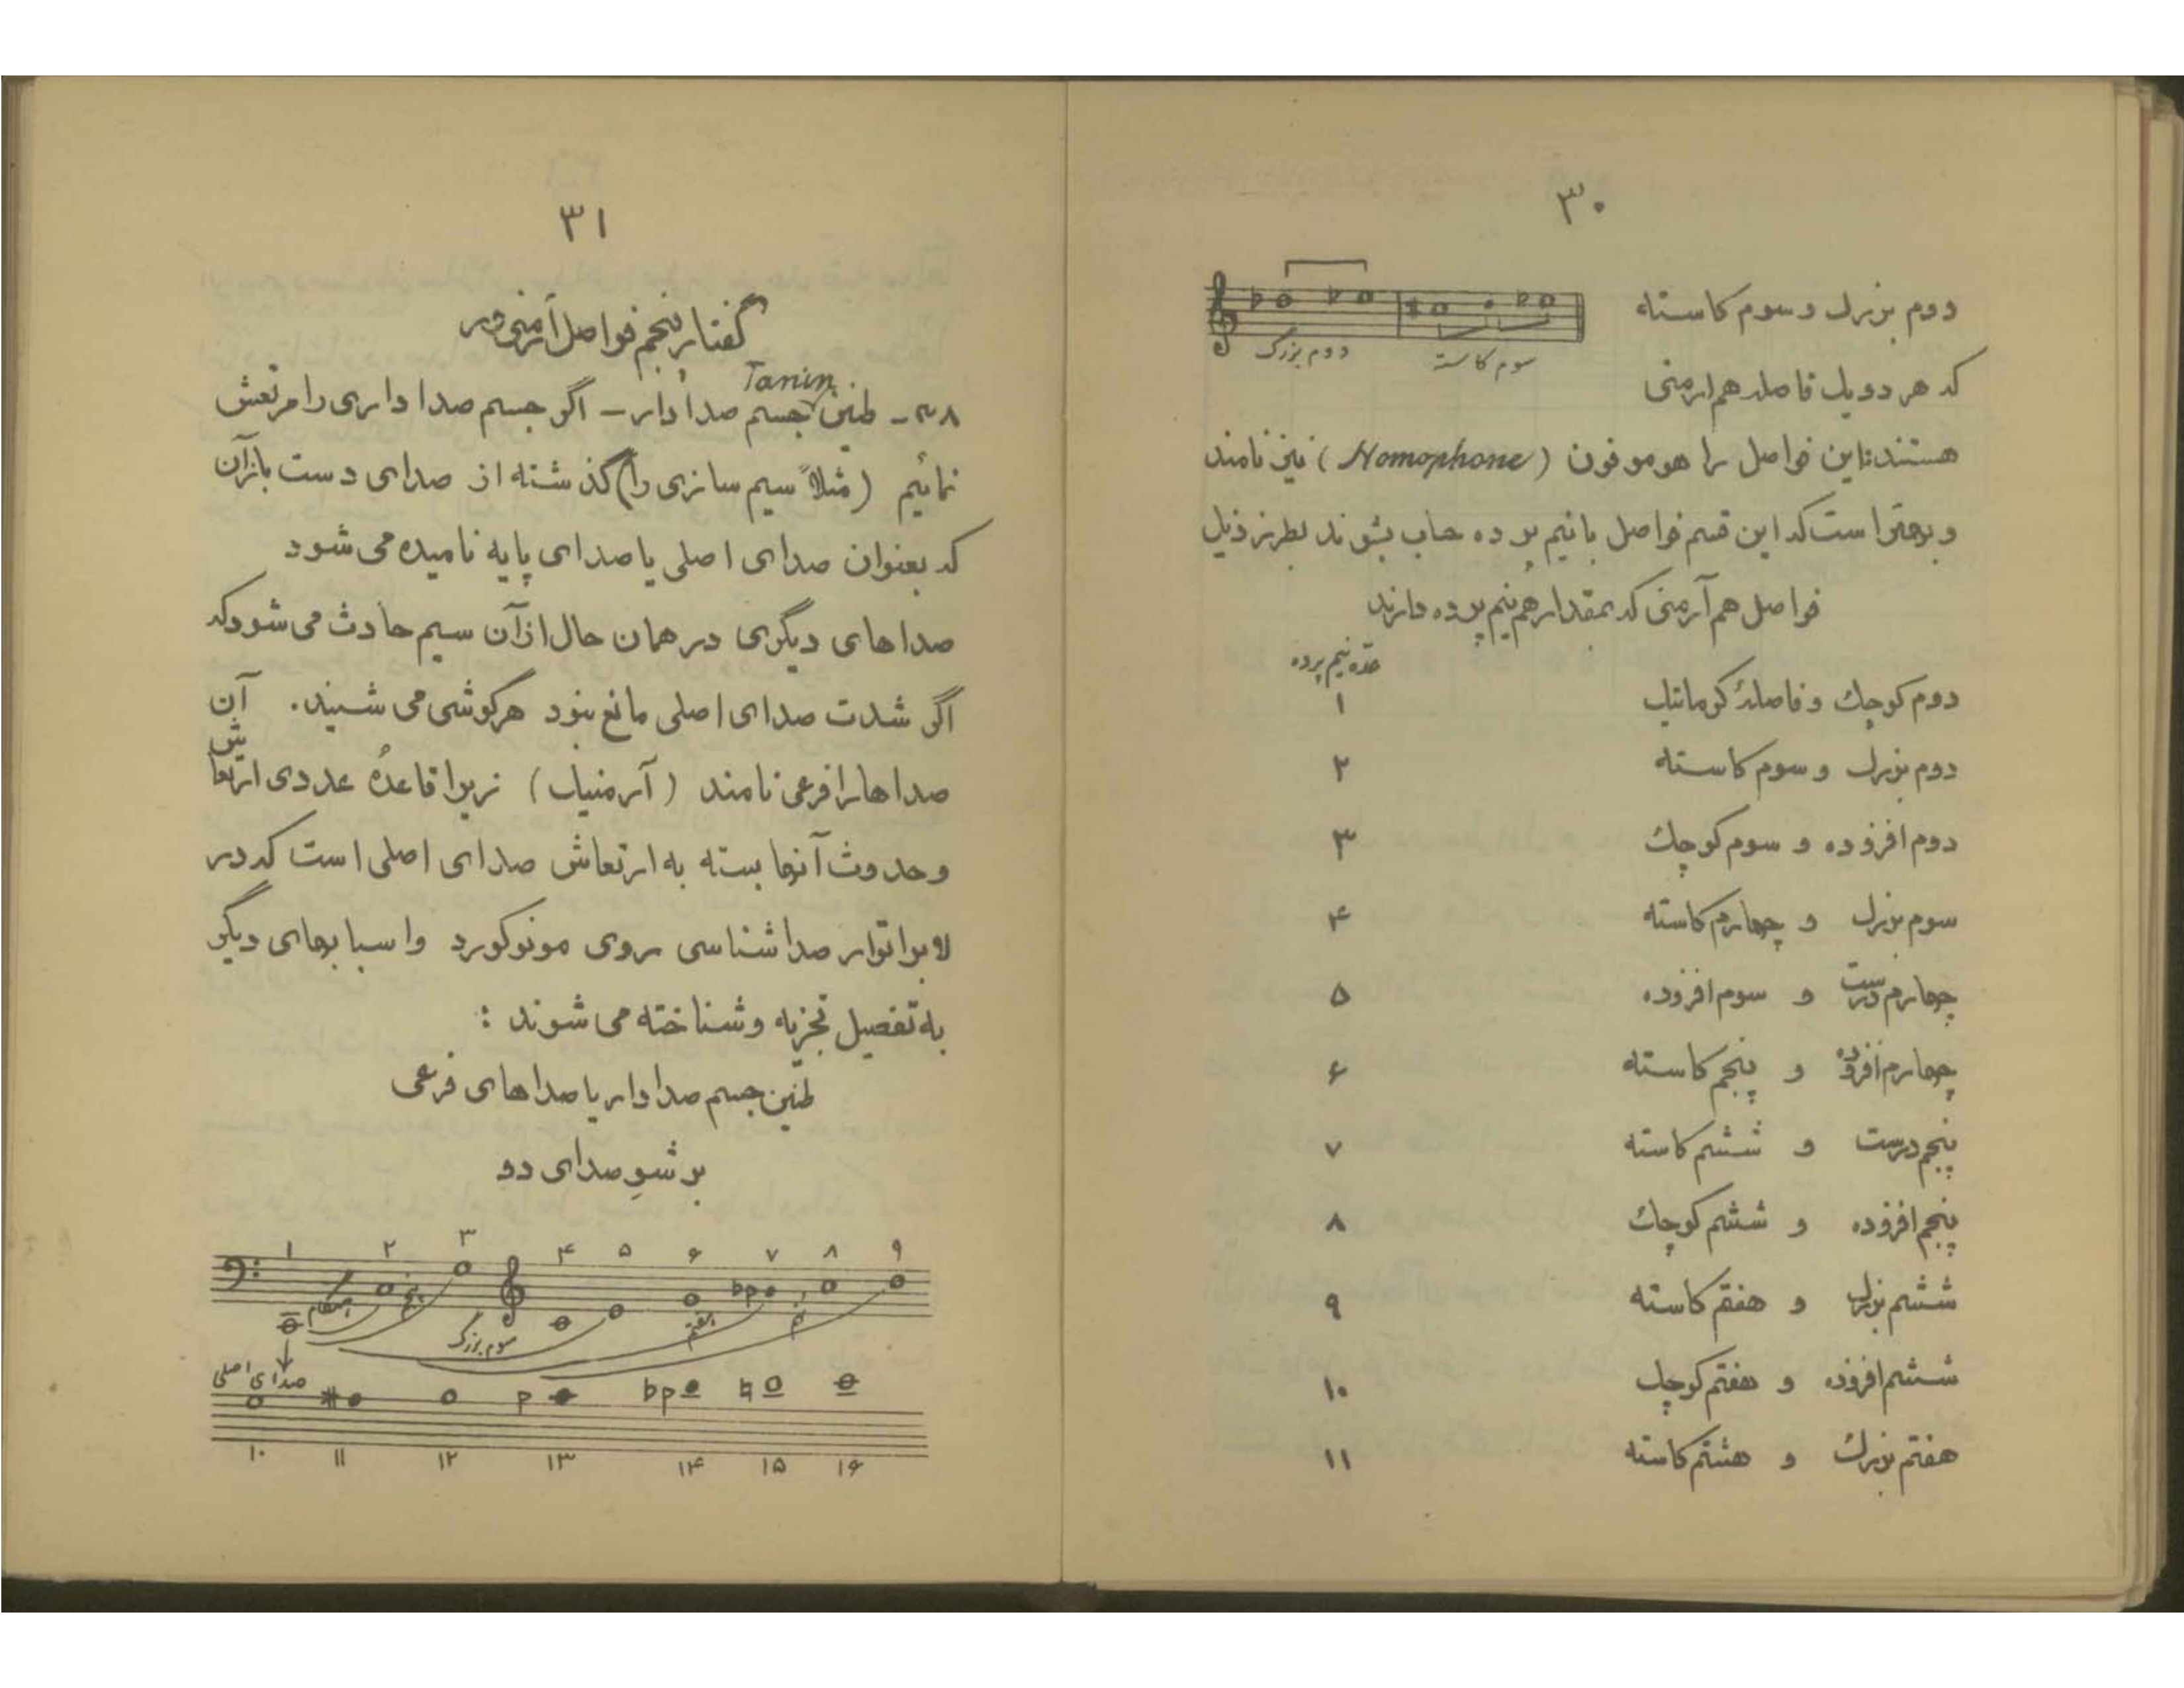 ۳۰
دوم بزرك و سوم كاسته
دوم بزرگ
سوم كاسته
كه هر دو يك فاصله هم ارمنى
هستند؛ اين فواصل را هوموفون (Homophone) نيز نامند
و بهتر است كه اين قسم فواصل با نيم پرده حساب بشوند بطرز ذيل
فواصل هم آرمنى كه بمقدار هم نيم پرده دارند
عده نيم پرده
دوم كوچك و فاصلهٔ كوماتيك ۱
دوم بزرك و سوم كاسته ۲
دوم افزوده و سوم كوچك ۳
سوم بزرك و چهارم كاسته ۴
چهارم درست و سوم افزوده ۵
چهارم افزوده و پنجم كاسته ۶
پنجم درست و ششم كاسته ۷
پنجم افزوده و ششم كوچك ۸
ششم بزرك و هفتم كاسته ۹
ششم افزوده و هفتم كوچك ۱۰
هفتم بزرك و هشتم كاسته ۱۱
۳۱
گفتار پنجم فواصل آرمنى ور
Tanin
۴۸ـ طنين جسم صدادار ـ اگر جسم صدا دارى را مرتعش
نمائيم (مثلاً سيم سازى را) گذشته از صداى دست باز آن
كه بعنوان صداى اصلى يا صداى پايه ناميده مى شود
صداهاى ديگرى در همان حال از آن سيم حادث مى شود كه
اگر شدت صداى اصلى مانع نبود هر گوشى مى شنيد. آن
صداها را فرعى نامند (آرمنيك) زيرا قاعدهٔ عددى ارتعاش
و حدوث آنها بسته به ارتعاش صداى اصلى است كه در
لابراتوار صداشناسى روى مونوكورد و اسبابهاى ديگر
به تفصيل تجزيه و شناخته مى شوند :
طنين جسم صدادار يا صداهاى فرعى
بر شو صداى دو
۱ ۲ ۳ ۴ ۵ ۶ ۷ ۸ ۹
هنگام پنجم سوم بزرگ هفتم نهم
صداى اصلى
۱۰ ۱۱ ۱۲ ۱۳ ۱۴ ۱۵ ۱۶